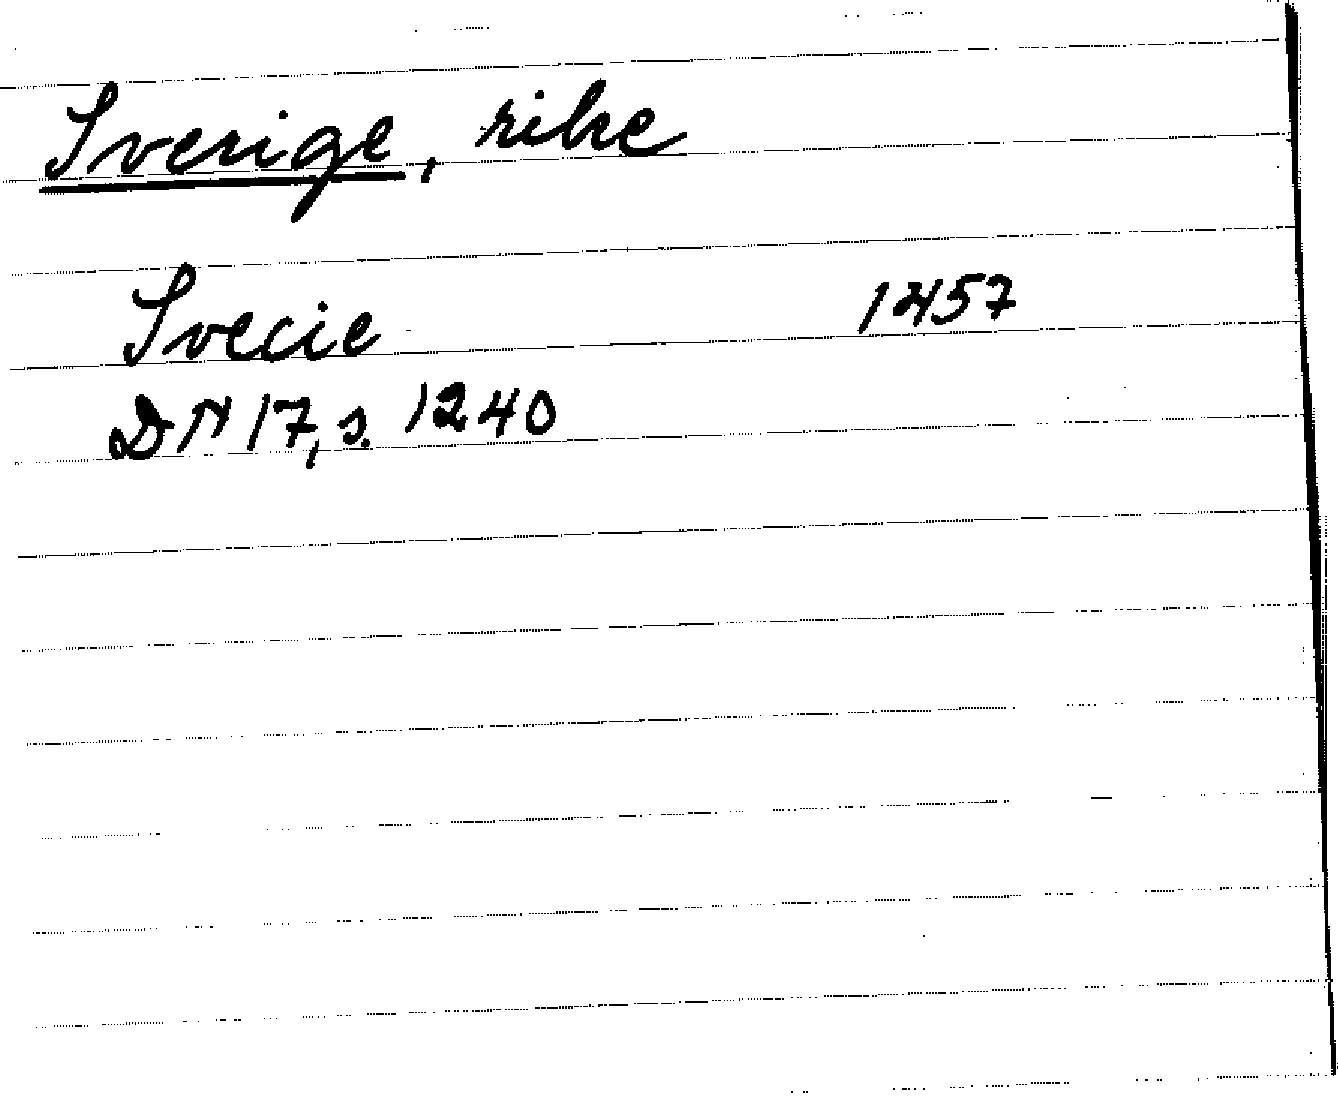 Sverige, rike
Svecie 1457
DN 17, s. 1240